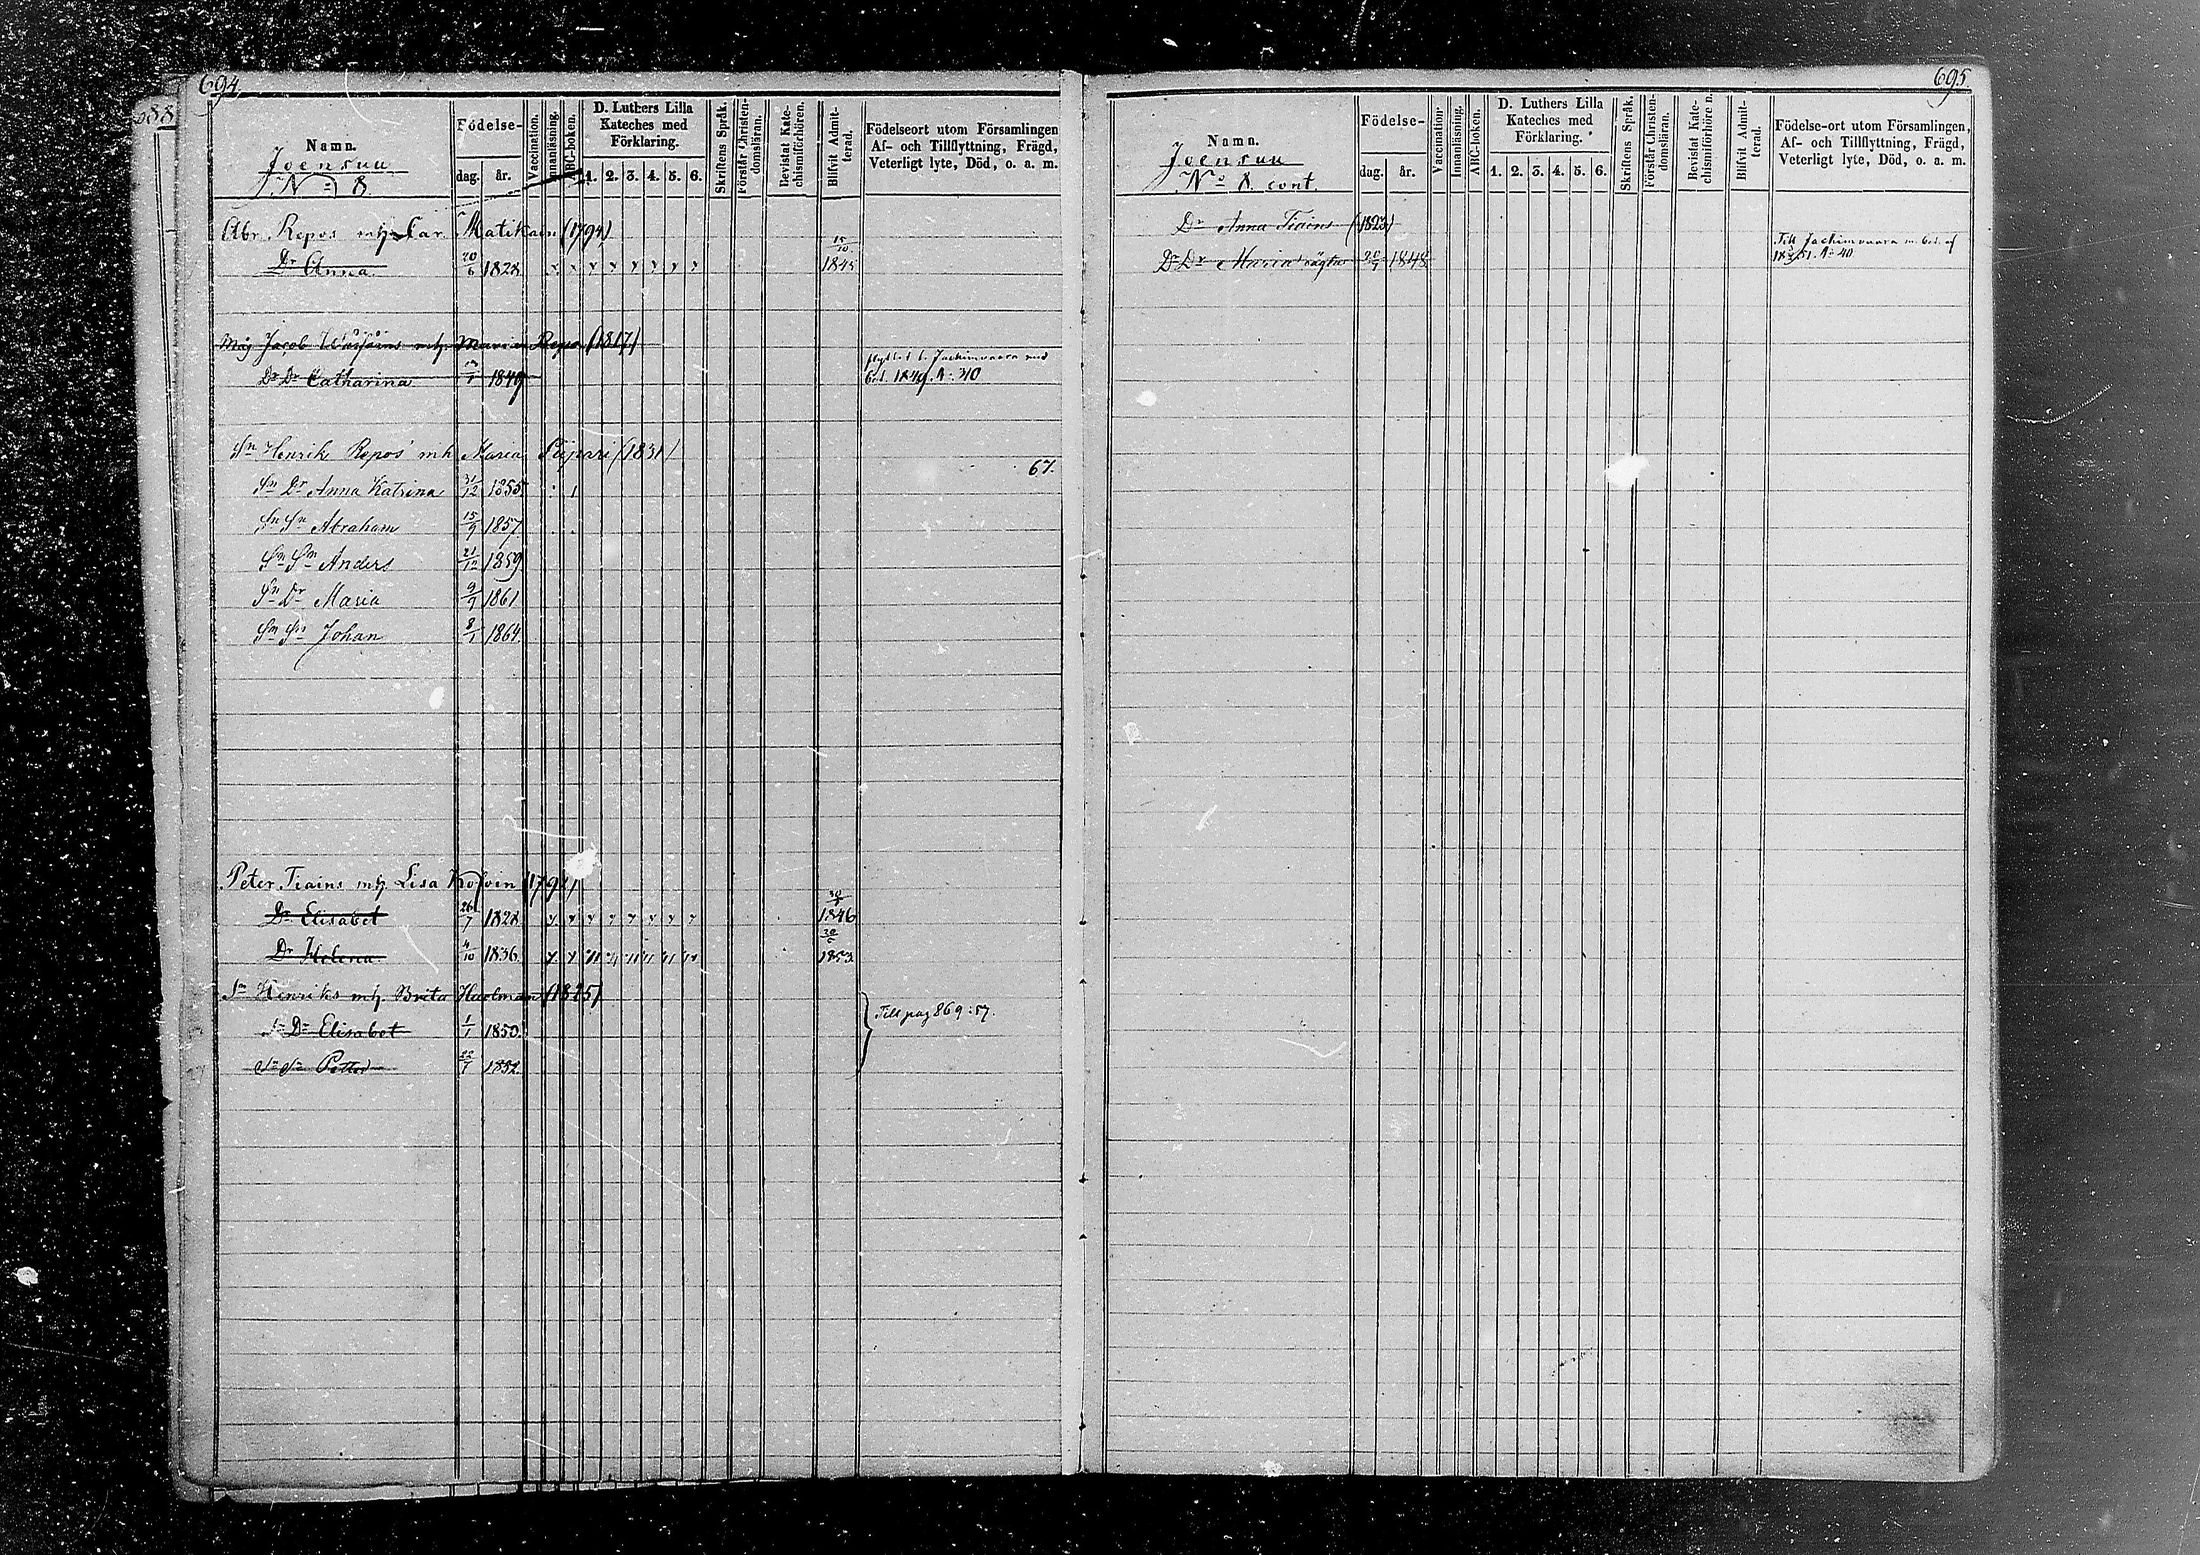 694.
688
Namn.
Joensuu
No 8.
Födelse-
dag. år.
Vaccination.
Innanläsning.
ABC-boken.
D. Luthers Lilla
Kateches med
Förklaring.
1. 2. 3. 4. 5. 6.
Skriftens Språk.
Förstår Christen-
domsläran.
Bevistat Kate-
chismiförhören.
Blifvit Admit-
terad.
Födelseort utom Församlingen
Af- och Tillflyttning, Frägd,
Veterligt lyte, Död, o. a. m.
Abr. Repos mh. Car. Matikain (1794)
Dr Anna 20/6 1828 15/10 1845
Måg Jacob mh. Maria Repo (1817)
Dr Dr Catharina 1849 flyttat t. Jackimvaara med
bet. 1849. No 30
Sn Henrik Repos mh Maria Piipari (1831)
67.
Sn Dr Anna Katrina 31/12 1855.
Sn Sn Abraham 15/9 1857.
Sn Sn Anders 21/12 1859.
Sn Dr Maria 9/9 1861
Sn Sn Johan 8/1 1864.
Peter Tiains mh. Lisa
Dr Elisabet 26/7 1828 1846
Dr Helena 4/10 1836. 1853
Sn Henriks mh. Brita
Sn Dr Elisabet 1/1 1850.
Sn Sn Petter 22/1 1852.
Till pag 869:57.
695.
Namn.
Joensuu
No 8 cont.
Födelse-
dag. år.
Vaccination.
Innanläsning.
ABC-boken.
D. Luthers Lilla
Kateches med
Förklaring.
1. 2. 3. 4. 5. 6.
Skriftens Språk.
Förstår Christen-
domsläran.
Bevistat Kate-
chismiförhören.
Blifvit Admit-
terad.
Födelse-ort utom Församlingen,
Af- och Tillflyttning, Frägd,
Veterligt lyte, Död, o. a. m.
Dr Anna Tiains (1823)
Dr Dr Maria 1848
Till Jackimvaara m. bet. af
No 40